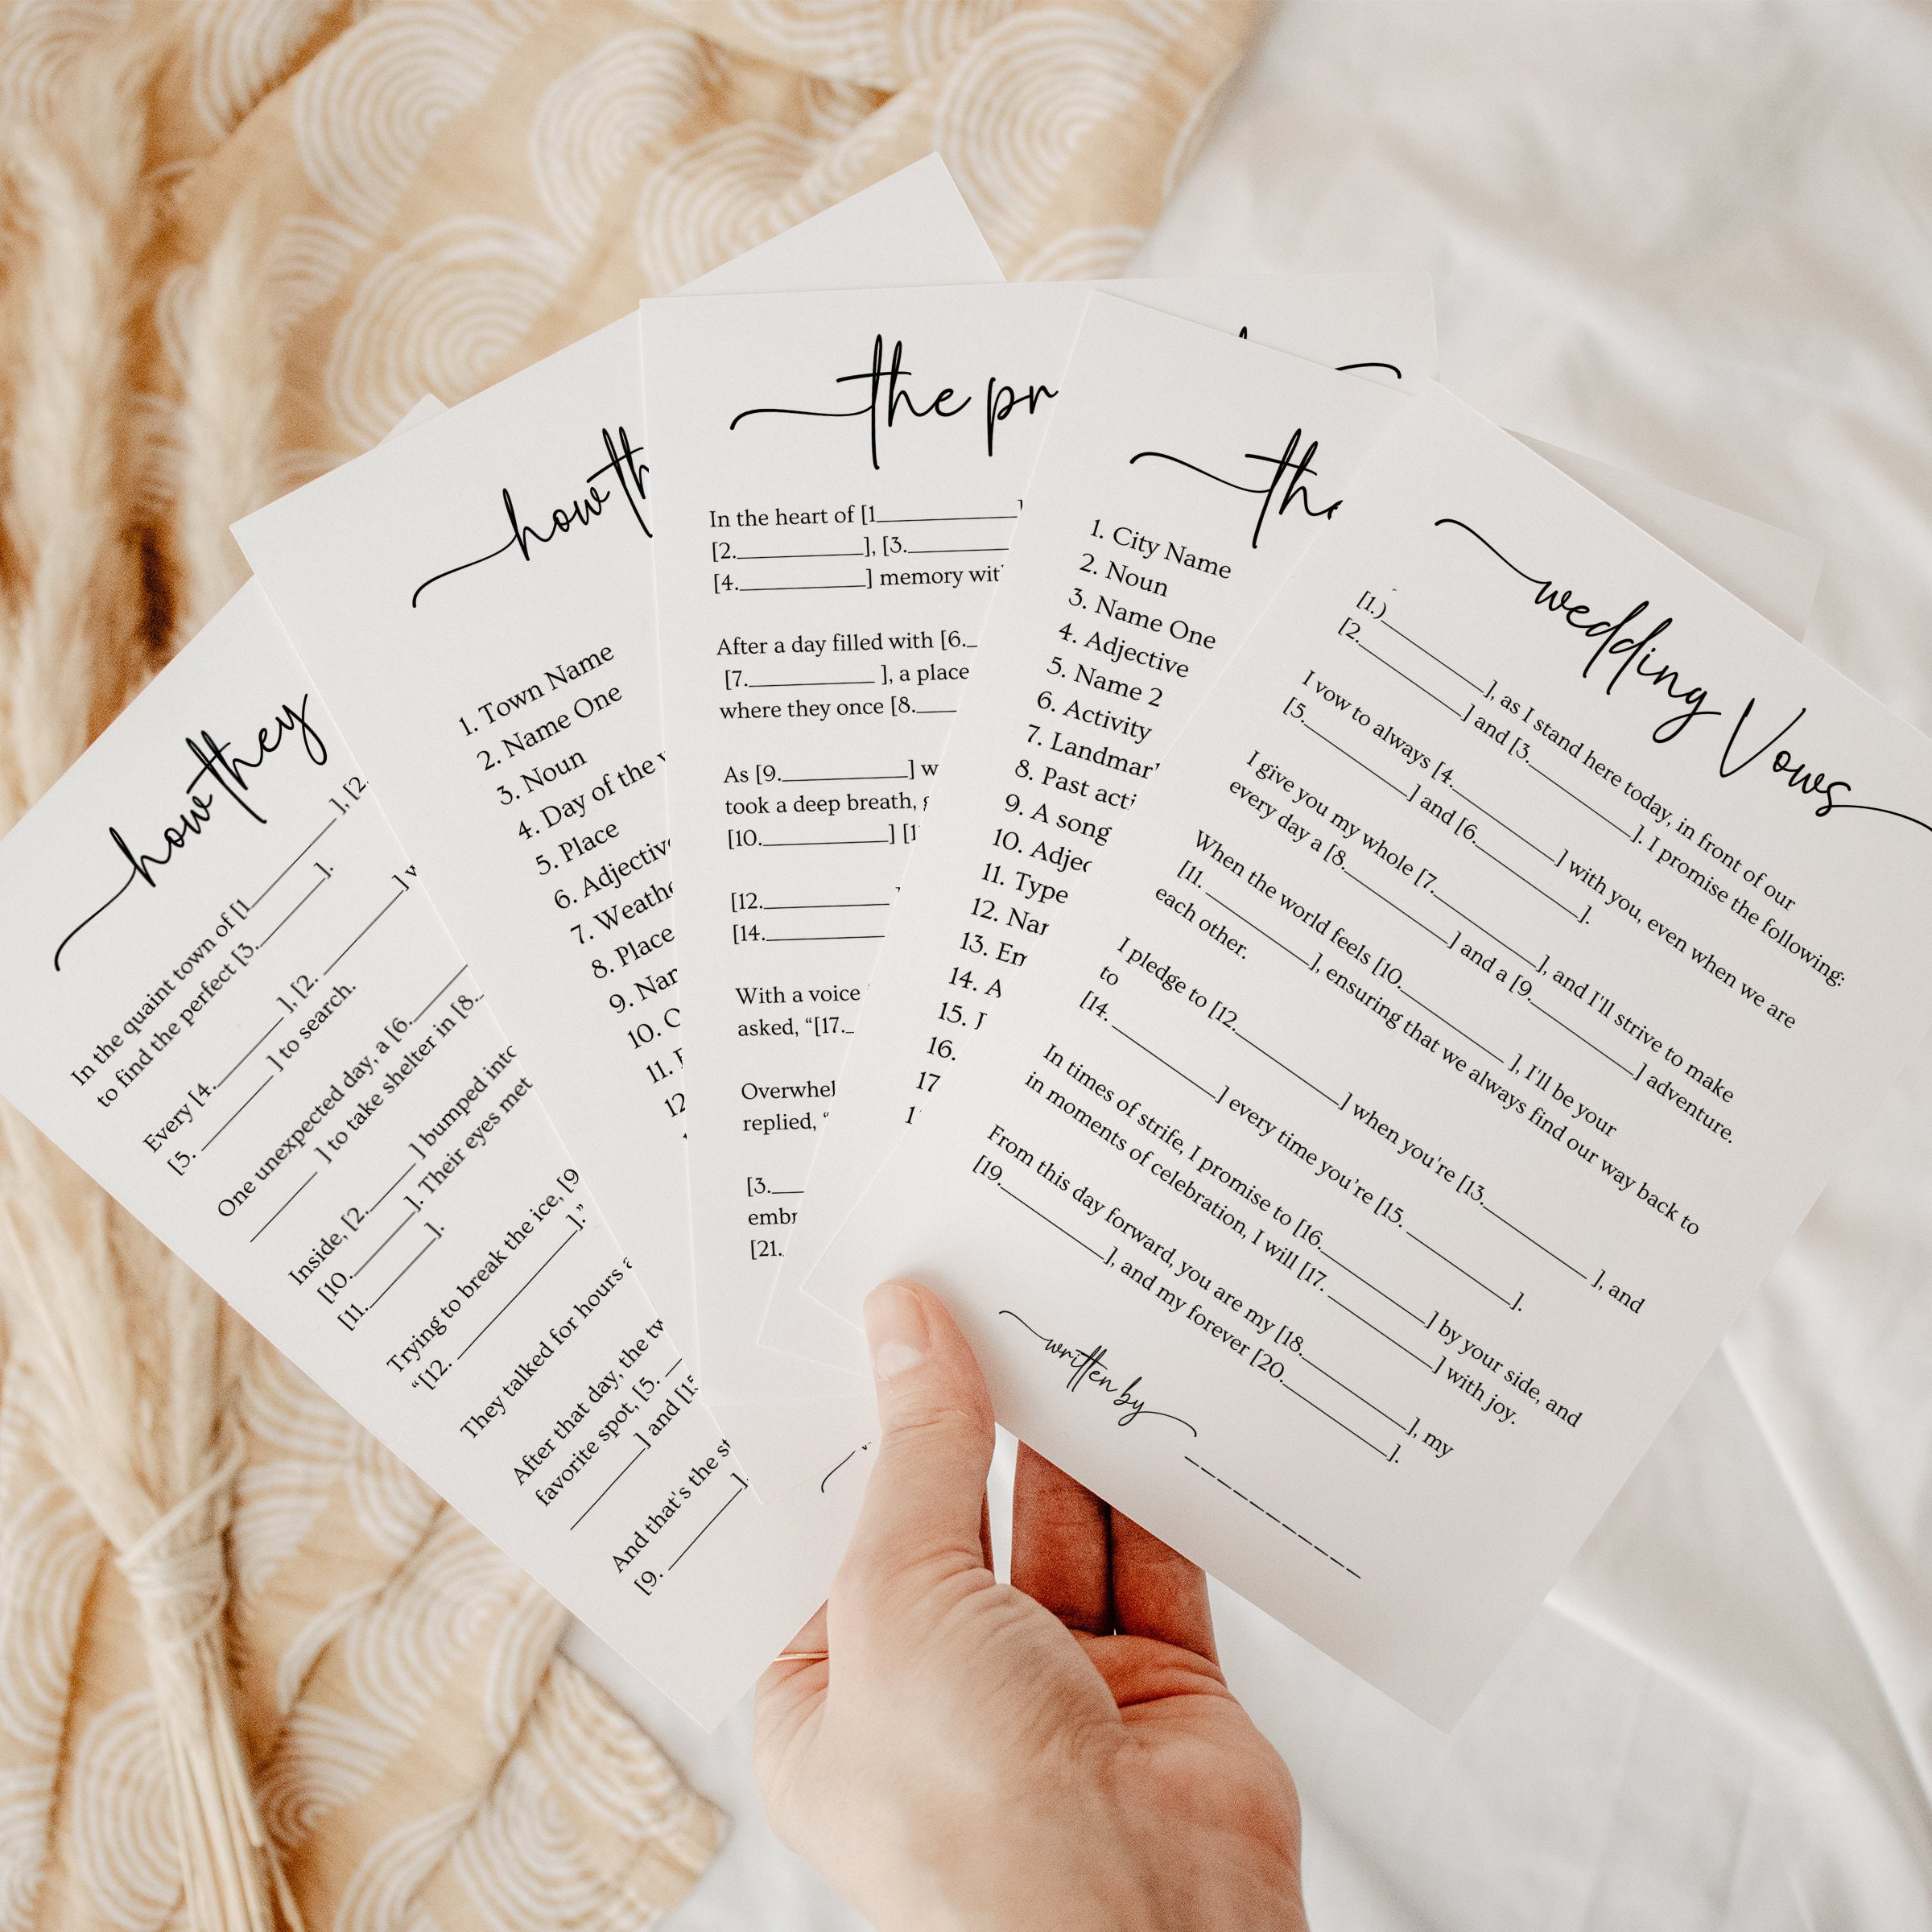 how they
In the quaint town of [1__________], [2.
to find the perfect [3.__________].
Every [4.__________], [2. __________]
[5. __________] to search.
One unexpected day, a [6.__________
__________] to take shelter in [8.
Inside, [2.__________] bumped into
[10.__________]. Their eyes met
[11.__________].
Trying to break the ice, [9
"[12. __________]."
They talked for hours
After that day, the
favorite spot, [5. __
__________] and [15
And that's the
[9. __________].
how
1. Town Name
2. Name One
3. Noun
4. Day of the
5. Place
6. Adjective
7.
8. Place
9.
10.
11.
12
the
In the heart of [1__________]
[2.__________], [3.__________
[4.__________] memory
After a day filled with [6._
[7.__________ ], a place
where they once [8.____
As [9.__________]
took a deep breath,
[10.__________] [1
[12.__________
[14.__________
With a voice
asked, "[17._
replied, "
[3.___
[21.
1. City Name
2. Noun
3. Name One
4. Adjective
5. Name 2
6. Activity
7.
8. Past
9. A song
10.
11. Type
12.
13.
14. A
15.
16.
17
wedding Vows
[1.)__________], as I stand here today, in front of our
[2.__________] and [3.__________]. I promise the following:
I vow to always [4.__________] with you, even when we are
[5.__________] and [6.__________].
I give you my whole [7.__________], and I'll strive to make
every day a [8.__________] and a [9.__________] adventure.
When the world feels [10.__________], I'll be your
[11.__________], ensuring that we always find our way back to
each other.
I pledge to [12.__________] when you're [13.__________], and
to
[14. __________] every time you're [15. __________].
In times of strife, I promise to [16.__________] by your side, and
in moments of celebration, I will [17. __________] with joy.
From this day forward, you are my [18.__________], my
[19.__________], and my forever [20.__________].
written by